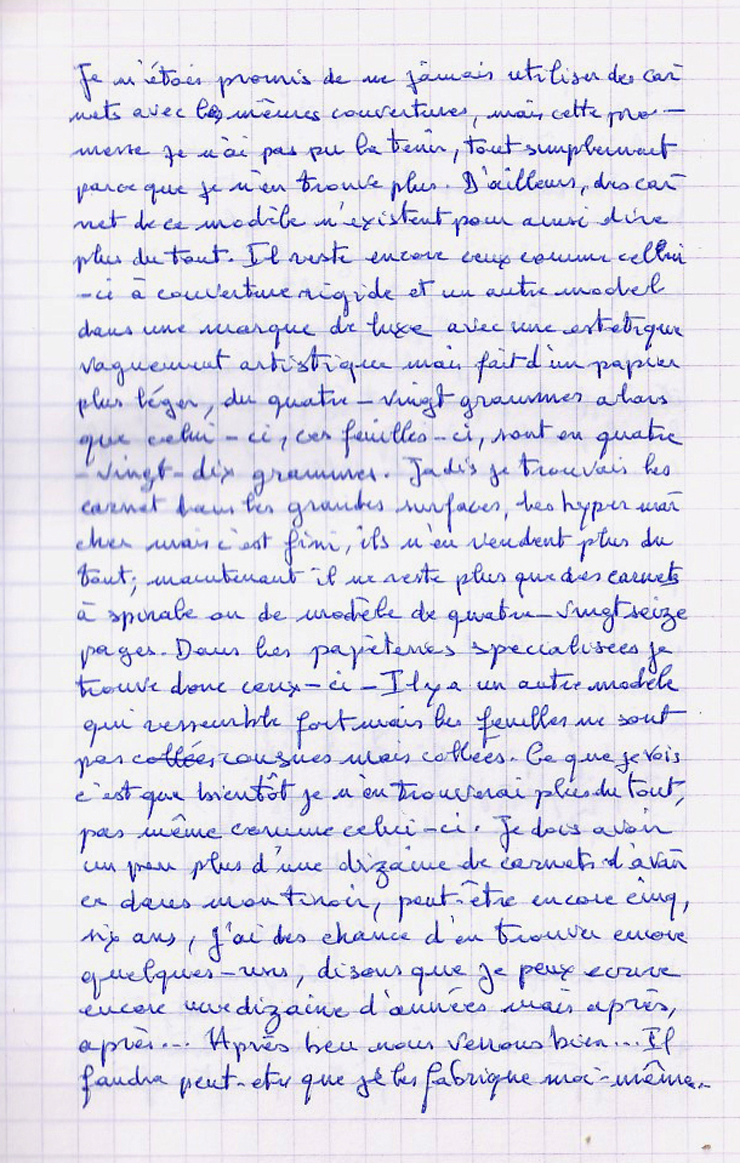 Je m'étais promis de ne jamais utiliser des car
nets avec les mêmes couvertures, mais cette pro-
messe je n'ai pas pu la tenir, tout simplement
parce que je n'en trouve plus. D'ailleurs, des car
net de ce modèle n'existent pour ainsi dire
plus du tout. Il reste encore ceux comme cellui
-ci à couverture rigide et un autre model
dans une marque de luxe avec une estetique
vaguement artistique mais fait d'un papier
plus léger, du quatre-vingt grammes alors
que celui-ci, ces feuilles-ci, sont en quatre
-vingt-dix grammes. Jadis je trouvais les
carnet dans les grandes surfaces, les hyper mar
chés mais c'est fini, ils n'en vendent plus du
tout; maintenant il ne reste plus que des carnets
à spirale ou de modèle de quatre-vingt seize
pages. Dans les papèteries specialisées je
trouve donc ceux-ci - Il y a un autre modèle
qui ressemble fort mais les feuilles ne sont
pas collées cousues mais collées. Ce que je vois
c'est que bientôt je n'en trouverai plus du tout,
pas même comme celui-ci. Je dois avoir
un peu plus d'une dizaine de carnets d'avan
ce dans mon tiroir, peut-être encore cinq,
six ans, j'ai des chance d'en trouver encore
quelques-uns, disons que je peux ecrire
encore une dizaine d'années mais après,
après... Après beu nous verrons bien... Il
faudra peut-etre que je les fabrique moi-même.-